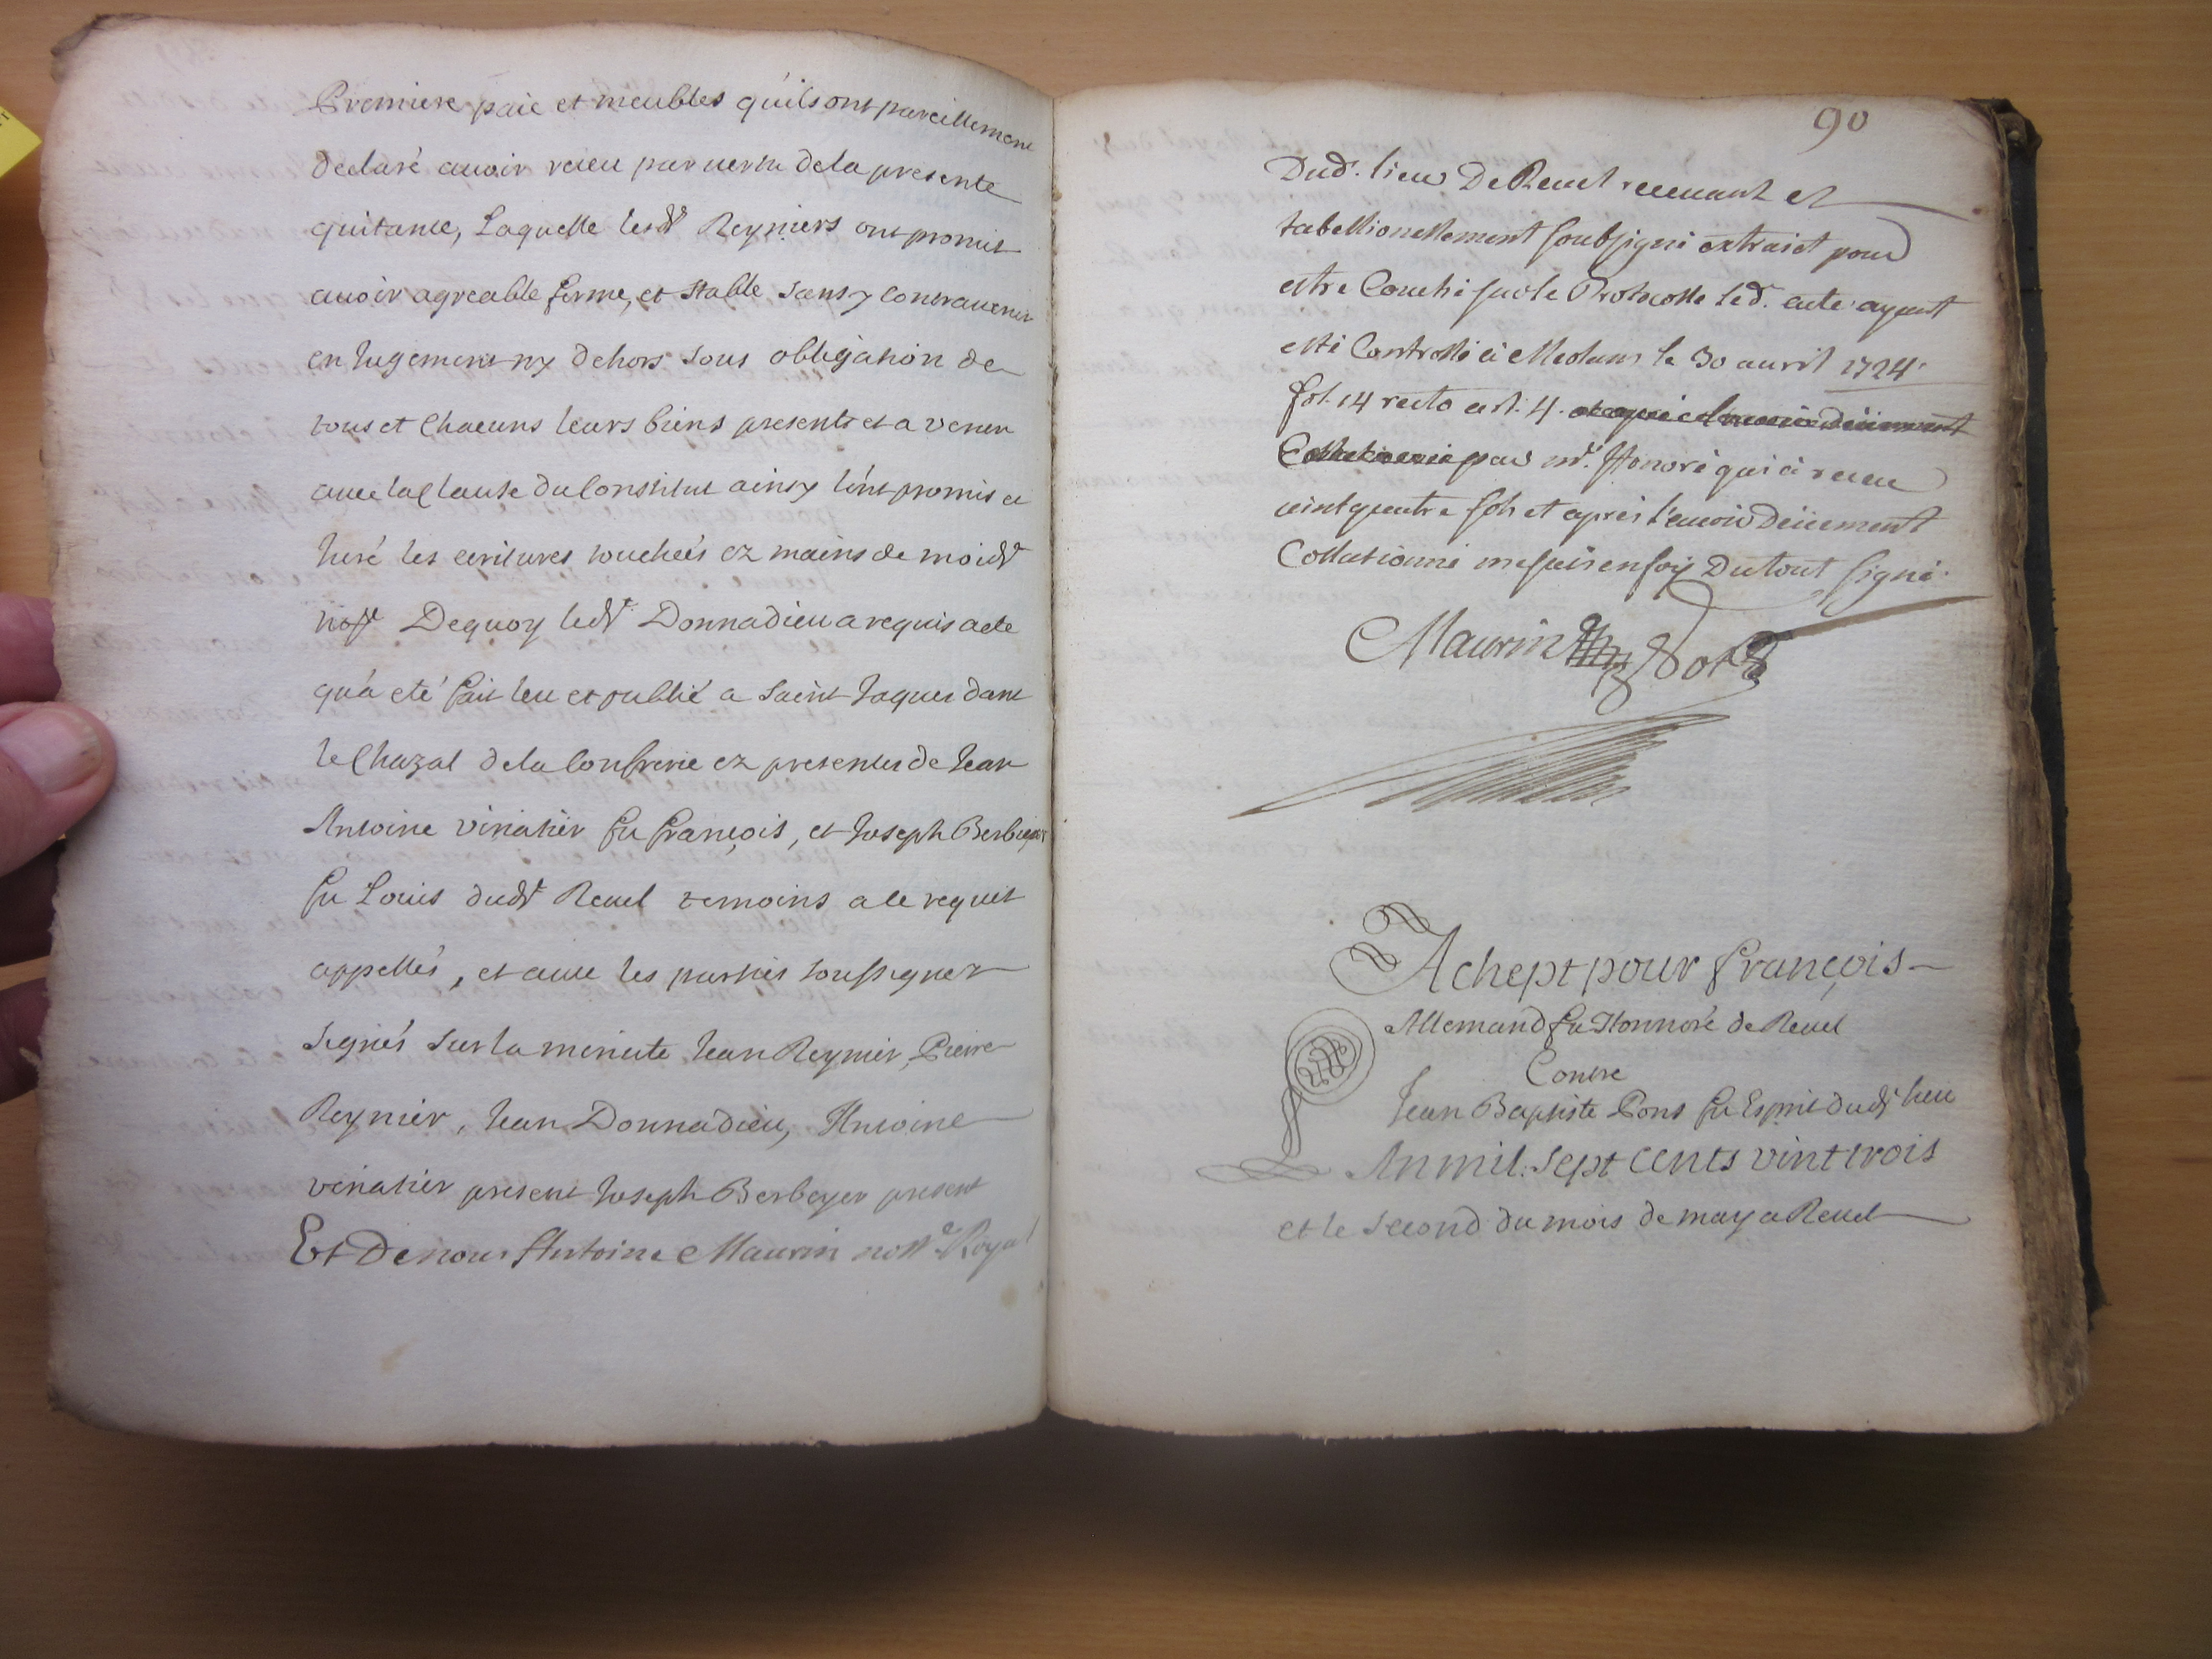 Premiere paie et meubles qu'ils ont pareillement
declaré avoir receu par vertu de la presente
quitance, Laquelle lesdt Reyniers ont promis
avoir agreable ferme, et stable sans y contravenir
en Jugement ny dehors sous obligation de
tous et Chacuns leurs biens presents et a venir
avec la Clause du Constitut ainsy l'ont promis et
Juré les ecritures touchées ez mains de moidt
nore Dequoy ledt Donnadieu a requis acte
qu'a eté fait leu et publié a Saint Jaques dans
le Chazal de la Confrerie ez presences de Jean
Antoine vinatier fu françois, et Joseph Berbeyer
fu Louis dudt Revel temoins a ce requis
appellés, et avec les parties soussignez
Signés sur la minute Jean Reynier, Pierre
Reynier, Jean Donnadieu, Antoine
vinatier present Joseph Berbeyer present
Et De nous Antoine Maurin nore Royal
90
Dud. lieu De Revel recevant et
tabellionellement soubsigné extraict pour
estre Couché sur le Protocolle led. acte ayant
esté Controllé à Meolans le 30 avril 1724
fol. 14 recto art. 4.
par mr. Honoré qui à receu
vintquatre sols et après l'avoir Deüement
Collationné me suis en foy Du tout signé.
Maurin Nore
Achept pour françois
Allemand fu Honnoré de Revel
Contre
Jean Baptiste Pons fu Esprit dudt lieu
An mil Sept cents vint trois
et le second du mois de may a Revel